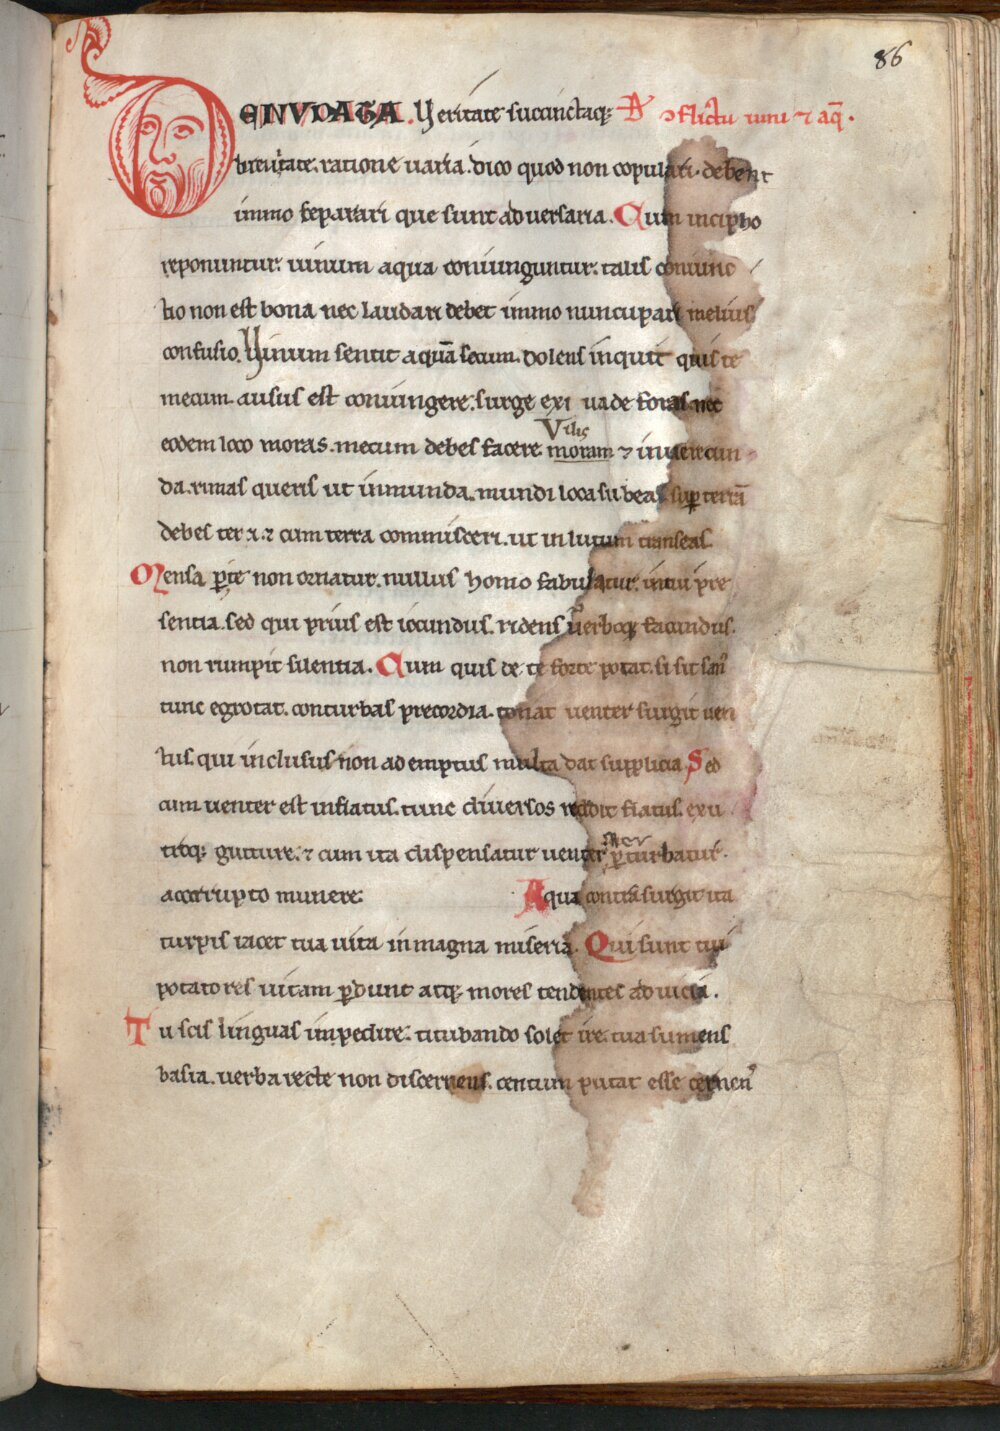 86
DENVDATA. Veritate succinctaq; De ꝯflictu uini ⁊ aq̄.
breuitate. ratione uaria. dico quod non copulari. debent
immo separari que sunt aduersaria. Cum in cipho
reponuntur. uinum aqua coniunguntur. talis coniunc
tio non est bona nec laudari debet immo nuncupari melius
confusio. Uinum sentit aquā secum. dolens inquit quis te
mecum. ausus est coniungere. surge exi uade foras nec
Vilis
eodem loco moras. mecum debes facere moram ⁊ inuerecun
da. rimas queris ut inmunda. mundi loca subeas sup̄ terrā
debes ter i. ⁊ cum terra commisceri. ut in lutum transeas.
Mensa p̱ te non ornatur. nullus homo fabulatur. in tui pre
sentia. sed qui prius est iocundus. ridens uerboq; facundus.
non rumpit silentia. Cum quis de te forte potat. si sit san᾿
tunc egrotat. conturbas precordia. tonat uenter surgit uen
tus. qui inclusus non ademptus multa dat supplicia Sed
cum uenter est inflatus. tunc diuersos reddit flatus. ex u
troq; gutture. ⁊ cum ita dispensatur uenter p̱turbatur.
a corrupto munere. Aqua contra surgit ita
turpis iacet tua uita in magna miseria. Qui sunt tui
potatores uitam p̱dunt atq; mores tendentes ad uicia.
Tu scis linguas impedire. titubando solet ire. tua sumens
basia. uerba recte non discernens. centum putat esse cernen᾿